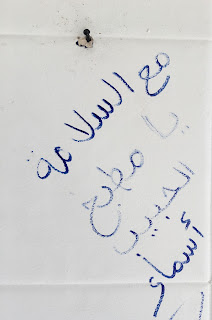 مع السلامة
يا مطبخ
الحبيب
أسماء